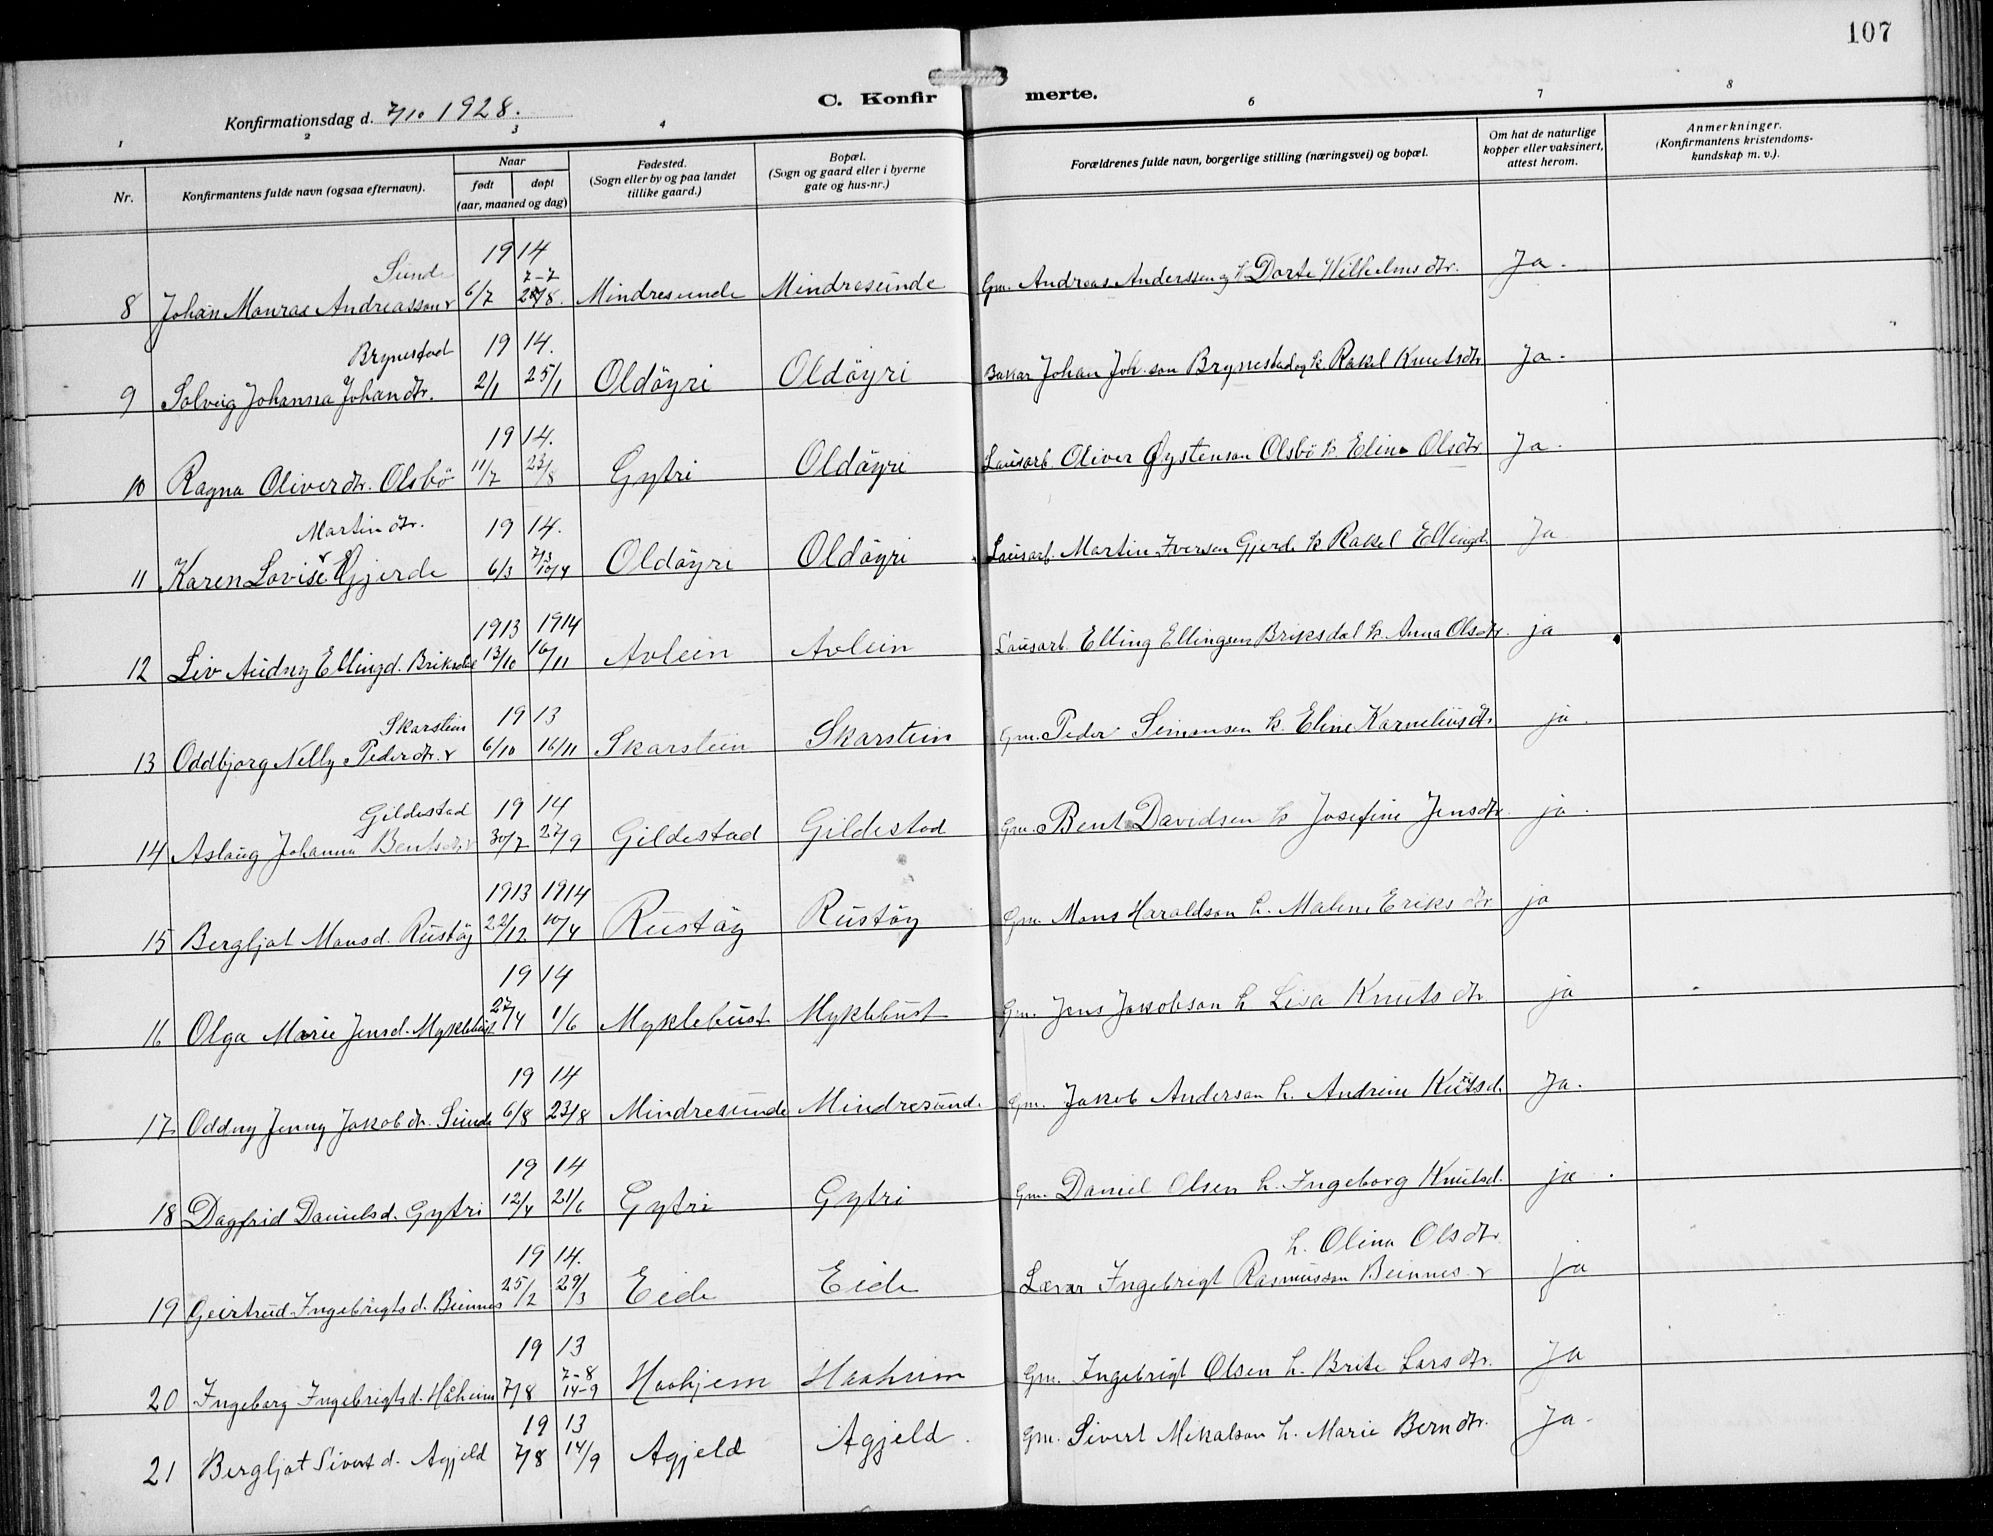 107
C. Konfirmerte.
Konfirmationsdag d. 7/10 1928.
1 2 3 4 6 7 8
Nr.
Konfirmantens fulde navn (ogsaa efternavn).
Naar
født døpt
(aar, maaned og dag)
Fødested.
(Sogn eller by og paa landet
tillike gaard.)
Bopæl.
(Sogn og gaard eller i byerne
gate og hus-nr.)
Forældrenes fulde navn, borgerlige stilling (næringsvei) og bopæl.
Om hat de naturlige
kopper eller vaksinert,
attest herom.
Anmerkninger.
(Konfirmantens kristendoms-
kundskap m. v.).
Sunde 19 14
7-7
8 Johan Monrae Andreasson v 6/7 28/8. Mindresunde Mindresunde Gm. Andreas Anderssen og h. Dorte Wilhelmsdtr. Ja.
Brynestad 19 14.
9 Solveig Johanna Johandtr. 2/1 25/1 Oldöyri Oldöyri Bakar Johan Joh.son Brynestad og k. Rakel Knutsdtr Ja.
19 14.
10 Ragna Oliverdtr. Olsbö 11/7 23/8 Gytri Oldöyri Lausarb. Oliver Øystenson Olsbö k. Eline Olsdtr Ja.
Martindtr. 19 14.
7/3
11 Karen Lovise v Gjerde 6/3 10/4 Oldöyri Oldöyri Lausarb. Martin Iversen Gjerde k Rakel Ellingdt. Ja
1913 1914
12 Liv Audny Ellingd. Briksdal 13/10 16/11 Avlein Avlein Lausarb. Elling Ellingsen Briksdal k. Anna Olsdtr. ja
Skarstein 19 13
13 Oddbjorg Nelly Pederdtr. v 6/10 16/11 Skarstein Skarstein Gm. Peder Simonsen k. Eline Korneliusdtr ja.
Gildestad 19 14
14 Aslaug Johanna Bentsdtr v 30/7 27/9 Gildestad Gildestad Gm. Bent Davidsen k Josefine Jensdtr. ja.
1913 1914
15 Bergljot Monsd. Rustöy 22/12 10/4 Rustöy Rustöy Gm. Mons Haraldson h. Malene Eriksdtr ja
19 14
16 Olga Marie Jensd. Myklebust 27/4 1/6 Myklebust Myklebust Gm. Jens Jakobson h Lisa Knutsdtr. ja
19 14
17 Oddny Jenny Jakobdtr. Sunde 6/8 23/8 Mindresunde Mindresunde Gm. Jakob Anderson h. Andrine Kutsd. Ja.
19 14
18 Dagfrid Danielsd. Gytri 12/4 21/6 Gytri Gytri Gm. Daniel Olsen h. Ingeborg Knutsd. ja.
19 14. h. Olina Olsdtr.
19 Geirtrud Ingebrigtsd. Beinnes 25/2 29/3 Eide Eide Lærar Ingebrigt Rasmusson Beinnes. v ja
19 13
7-8
20 Ingeborg Ingebrigtsd. Haheim 7/8 14-9 Haahjem Haaheim Gm. Ingebrigt Olsen h. Brite Larsdtr. Ja
19 13
21 Bergljot Sivertd. Agjeld 7/8 14/9 Agjeld Agjeld. Gm. Sivert Mikalson h. Marie Berndtr. Ja.